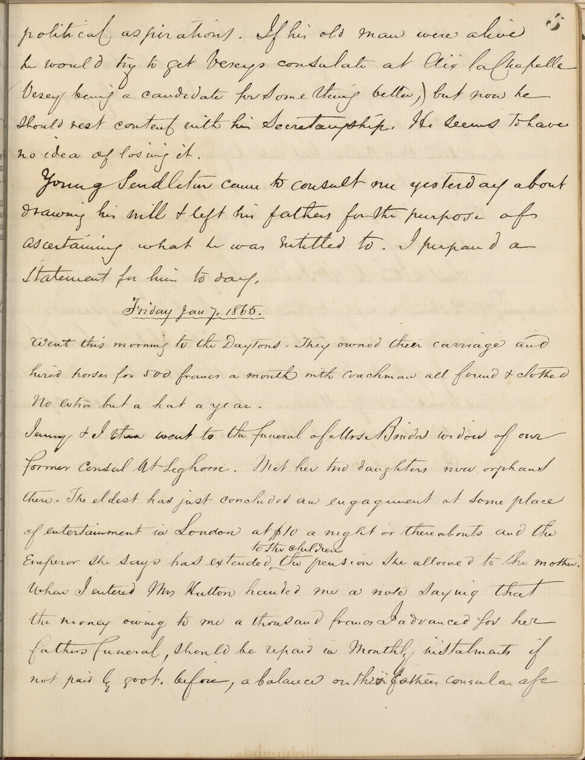 5
political aspirations. If his old man were alive
he would try to get Veseys consulate at Aix la Chapelle
Vesey being a candidate for some thing better,) but now he
should rest content with his Secretaryship. He seems to have
no idea of losing it.
Young Pendleton came to consult me yesterday about
drawing his will & left his fathers for the purpose of
ascertaining what he was entitled to. I prepared a
statement for him to day.
Friday Jan 7, 1865.
Went this morning to the Daytons. They owned their carriage and
hired horses for 500 francs a month with coachman all found & clothed
No extra but a hat a year.
Jenny & I then went to the funeral of Mrs Binda widow of our
former Consul at Leghorn. Met her two daughters now orphans
there. The eldest had just concluded an engagement at some place
of entertainment in London at $10 a night or thereabouts and the
to the children
Emperor she says has extended the pension she allowed to the mother.
When I entered Mrs Hutton handed me a note saying that
the money owing to me a thousand francs I advanced for her
fathers funeral, should be repaid in Monthly instalments if
not paid by govt. before, a balance on their fathers consular a/c